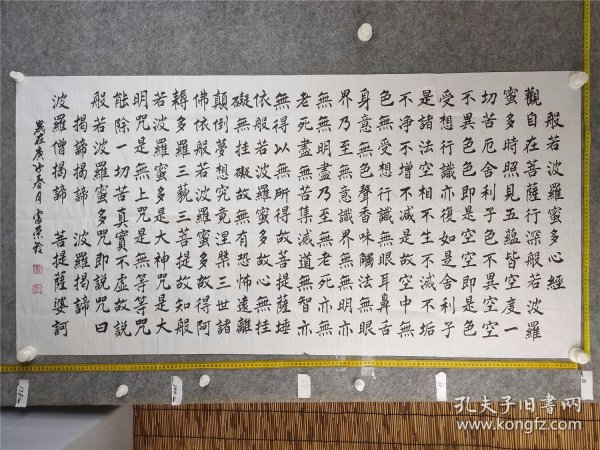 般若波羅蜜多心經
觀自在菩薩行深般若波羅
蜜多時照見五蘊皆空度一
切苦厄舍利子色不異空空
不異色色即是空空即是色
受想行識亦復如是舍利子
是諸法空相不生不滅不垢
不淨不增不減是故空中無
色無受想行識無眼耳鼻舌
身意無色聲香味觸法無眼
界乃至無意識界無無明亦
無無明盡乃至無老死亦無
老死盡無苦集滅道無智亦
無得以無所得故菩提薩埵
依般若波羅蜜多故心無挂
礙無挂礙故無有恐怖遠離
顛倒夢想究竟涅槃三世諸
佛依般若波羅蜜多故得阿
耨多羅三藐三菩提故知般
若波羅蜜多是大神咒是大
明咒是無上咒是無等等咒
能除一切苦真實不虛故說
般若波羅蜜多咒即說咒曰
揭諦揭諦 波羅揭諦
波羅僧揭諦 菩提薩婆訶
庚子春月
孔夫子旧书网
www.kongfz.com